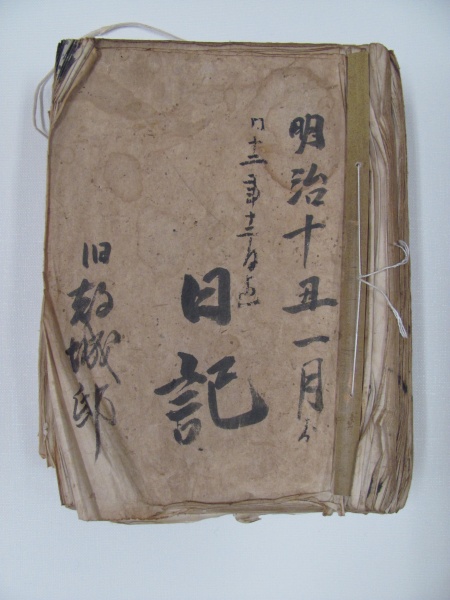 明治十丑一月ゟ
同十二年十二月迄
日記
旧城邸